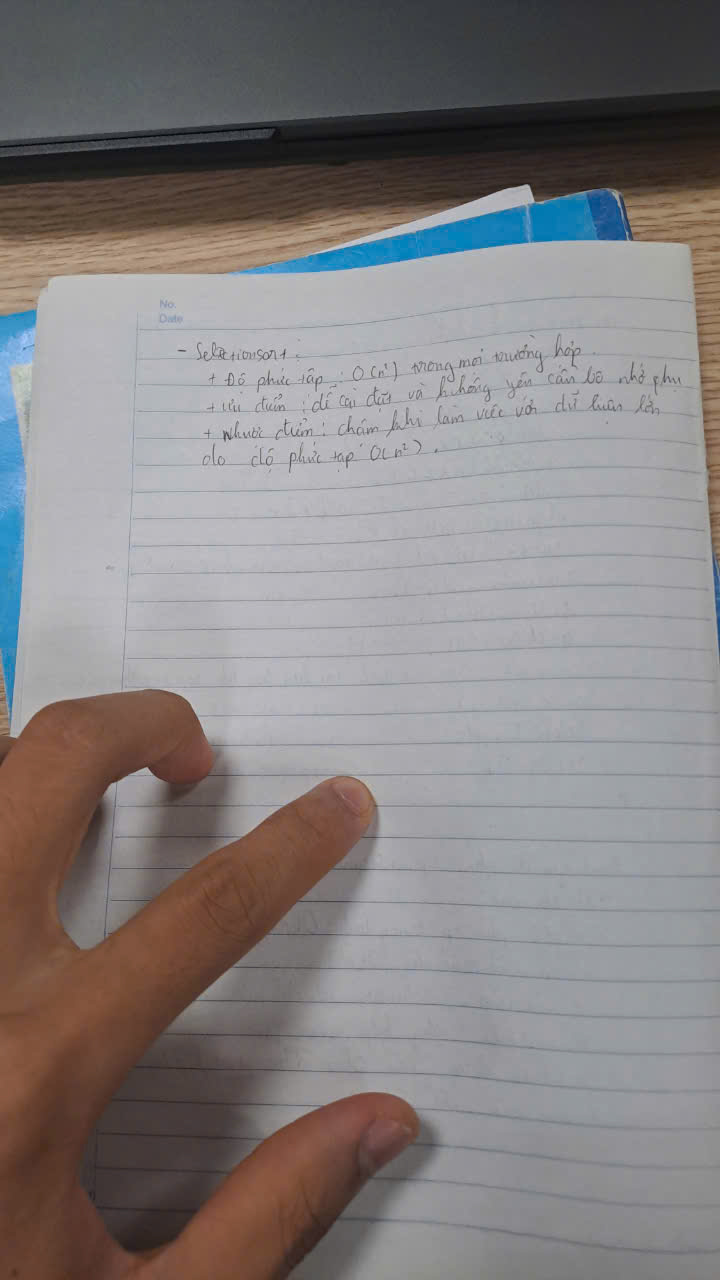 No.
Date
- Selectionsort :
+ Độ phức tập : O(n²) trong mọi trường hợp.
+ Ưu điểm : dễ cài đặt và không yêu cầu bộ nhớ phụ
+ Nhược điểm : chậm khi làm việc với dữ liệu lớn
do độ phức tạp O(n²).